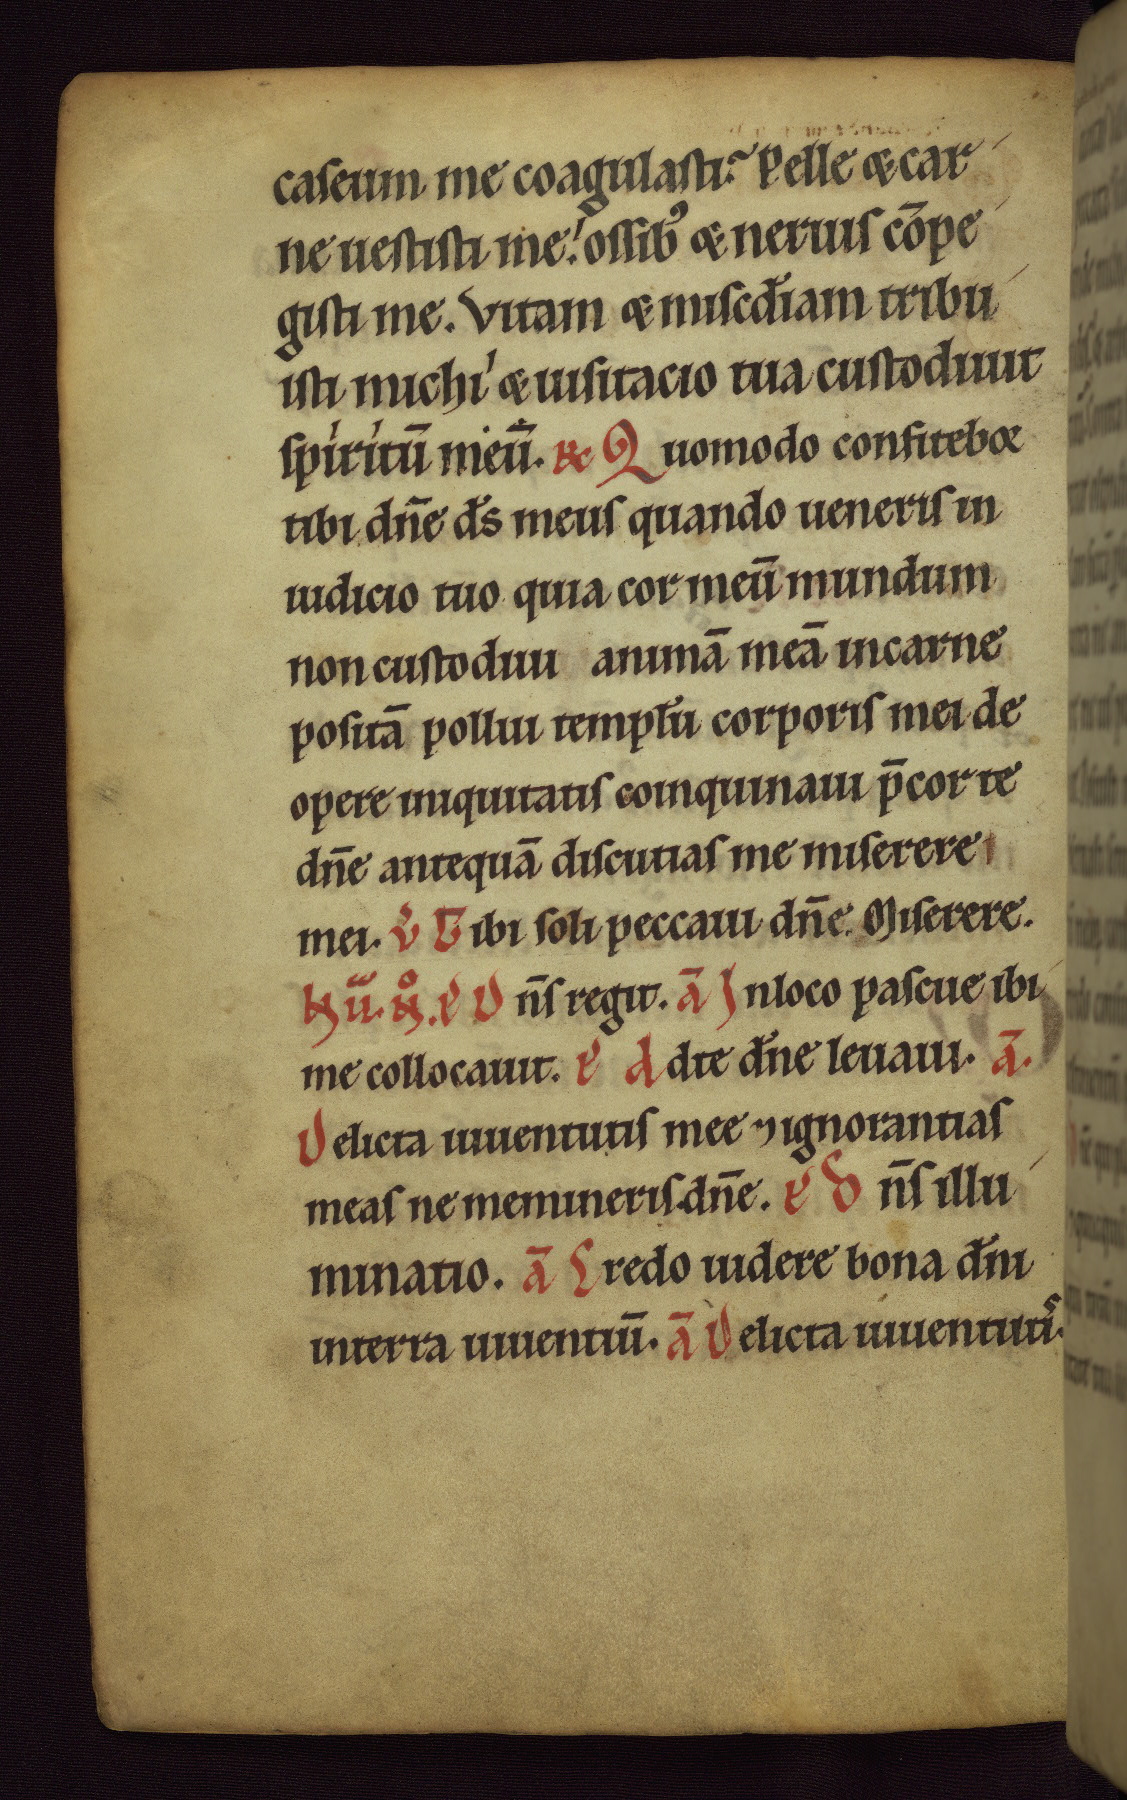 caseum me coagulasti? Pelle & car
ne uestisti me! ossib' & neruis cōpe
gisti me. Vitam & misc̄diam tribu
isti michi & uisitacio tua custodiuit
spiritū meū. R Quomodo confiteb&
tibi dn̄e ds̄ meus quando ueneris in
iudicio tuo quia cor meū mundum
non custodiui animā meā in carne
positā pollui templū corporis mei de
opere iniquitatis coinquinaui p̄cor te
dn̄e antequā discutias me miserere
mei. V Tibi soli peccaui dn̄e. Miserere.
P Dn̄s regit. ā In loco pascue ibi
me collocauit. P Ad te dn̄e leuaui. ā.
Delicta iuuentutis mee ⁊ ignorantias
meas ne memineris dn̄e. P Dn̄s illu
minatio. ā Credo uidere bona dn̄i
in terra uiuentiū. ā Delicta iuuentutis.